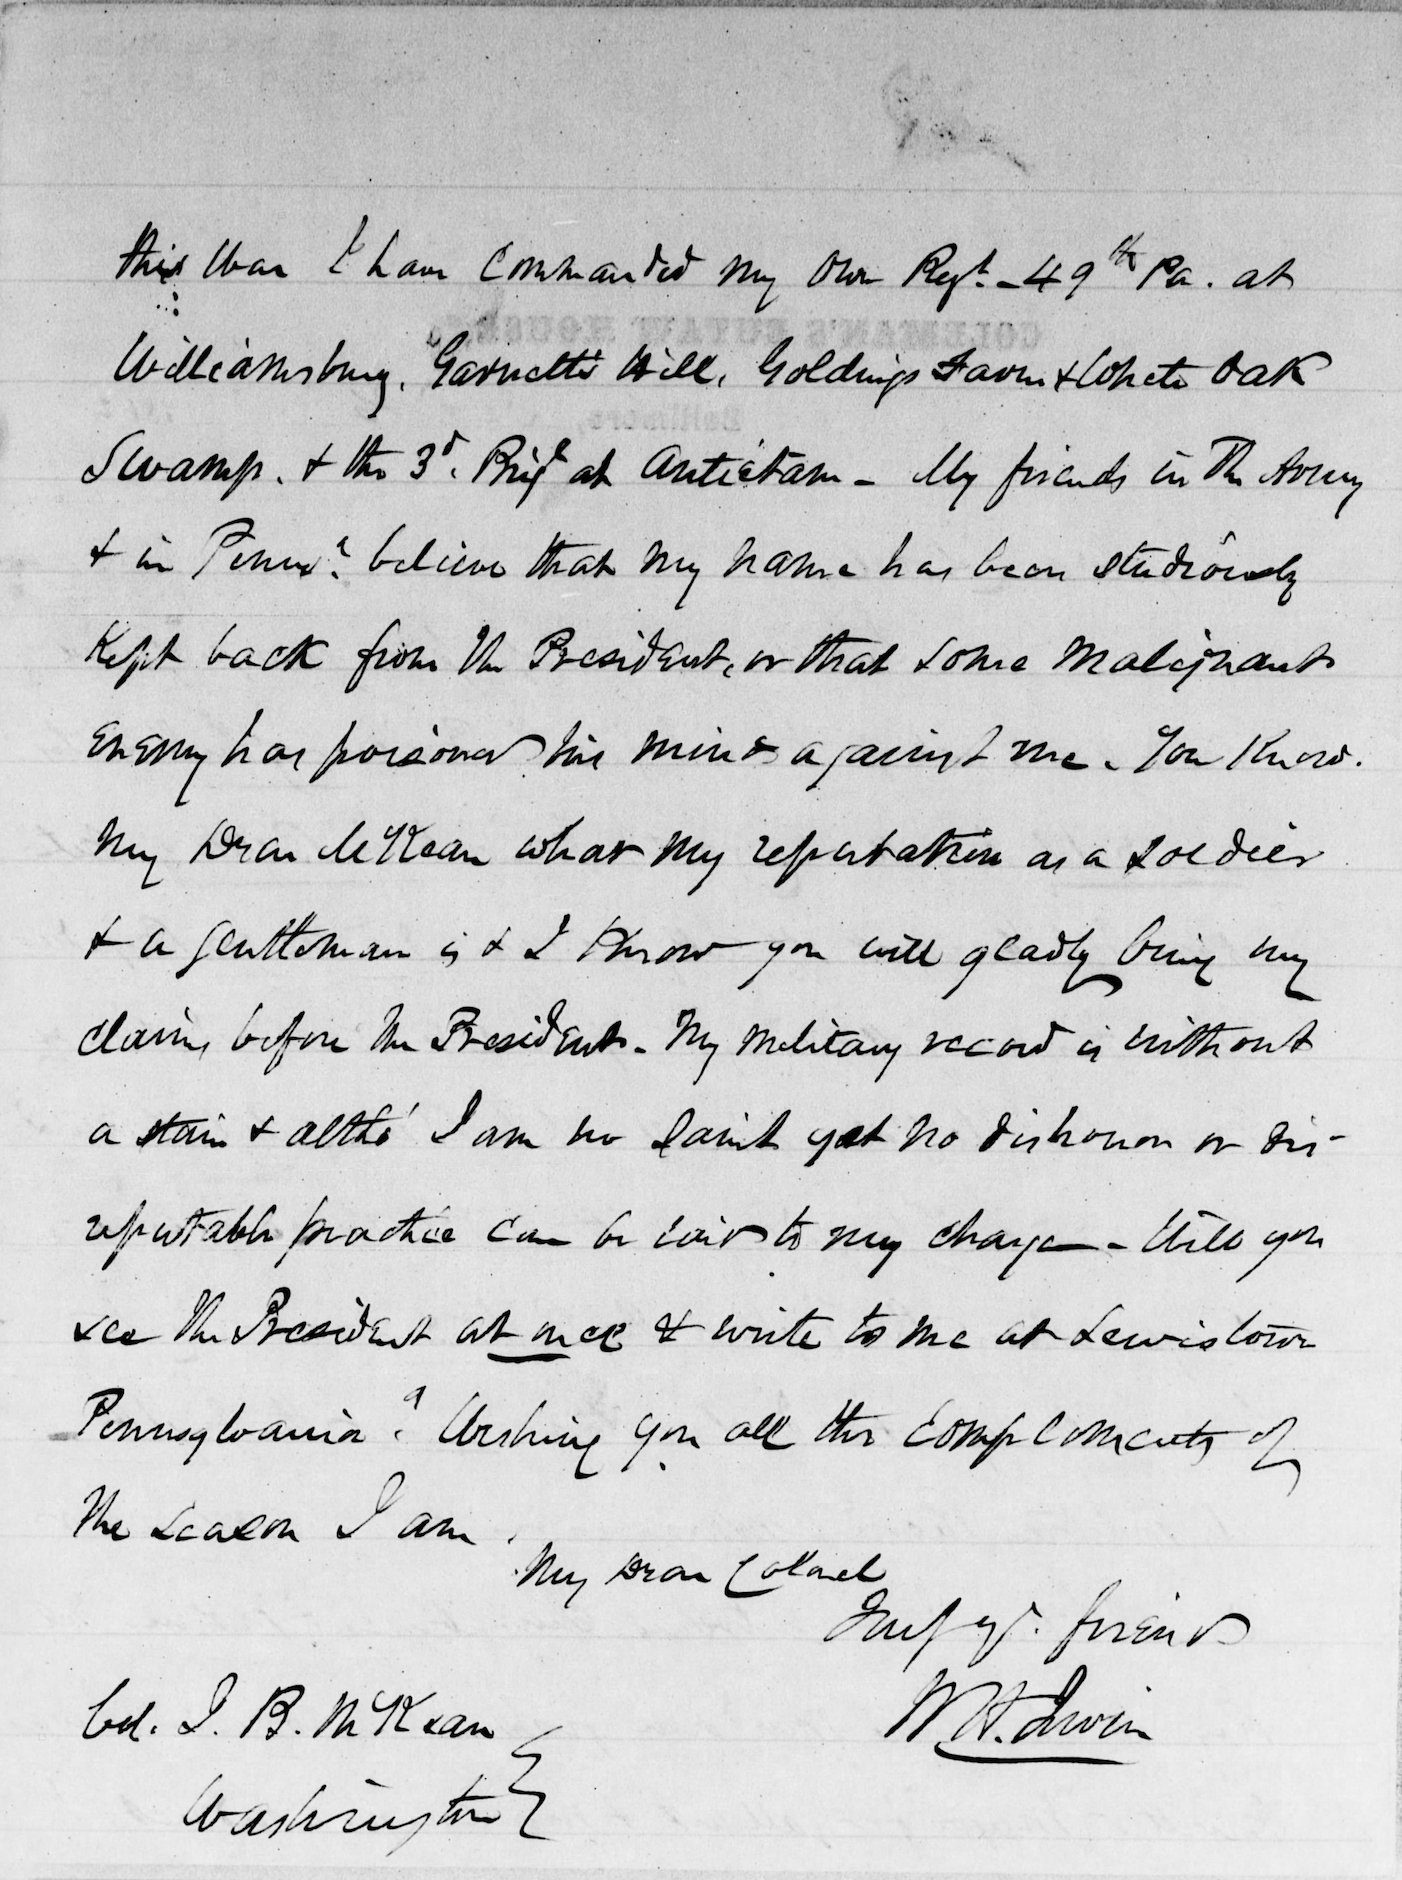 this War I have commanded my own Regt. - 49th Pa. at
Williamsburg, Garnetts Hill, Goldings Farm & White Oak
Swamp. & the 3d. Brigd at Antietam - My friends in the Army
& in Pennsa. believe that my name has been studiously
Kept back from the President, or that some malignant
enemy has poisoned his mind against me. You Know.
my Dear McKean what my reputation as a soldier
& a gentleman is & I Know you will gladly bring my
claims before the President - My military record is without
a stain & altho' I am no Saint yet no dishonor or dis-
reputable practice can be laid to my charge - Will you
see the President at once & write to me at Lewistown
Pennsylvania? Wishing you all the compliments of
the season I am
My Dear Colonel
Truly yr. friend
W H. Irwin
Col. I. B. McKean
Washington
COLEMAN'S EUTAW HOUSE,
Baltimore,